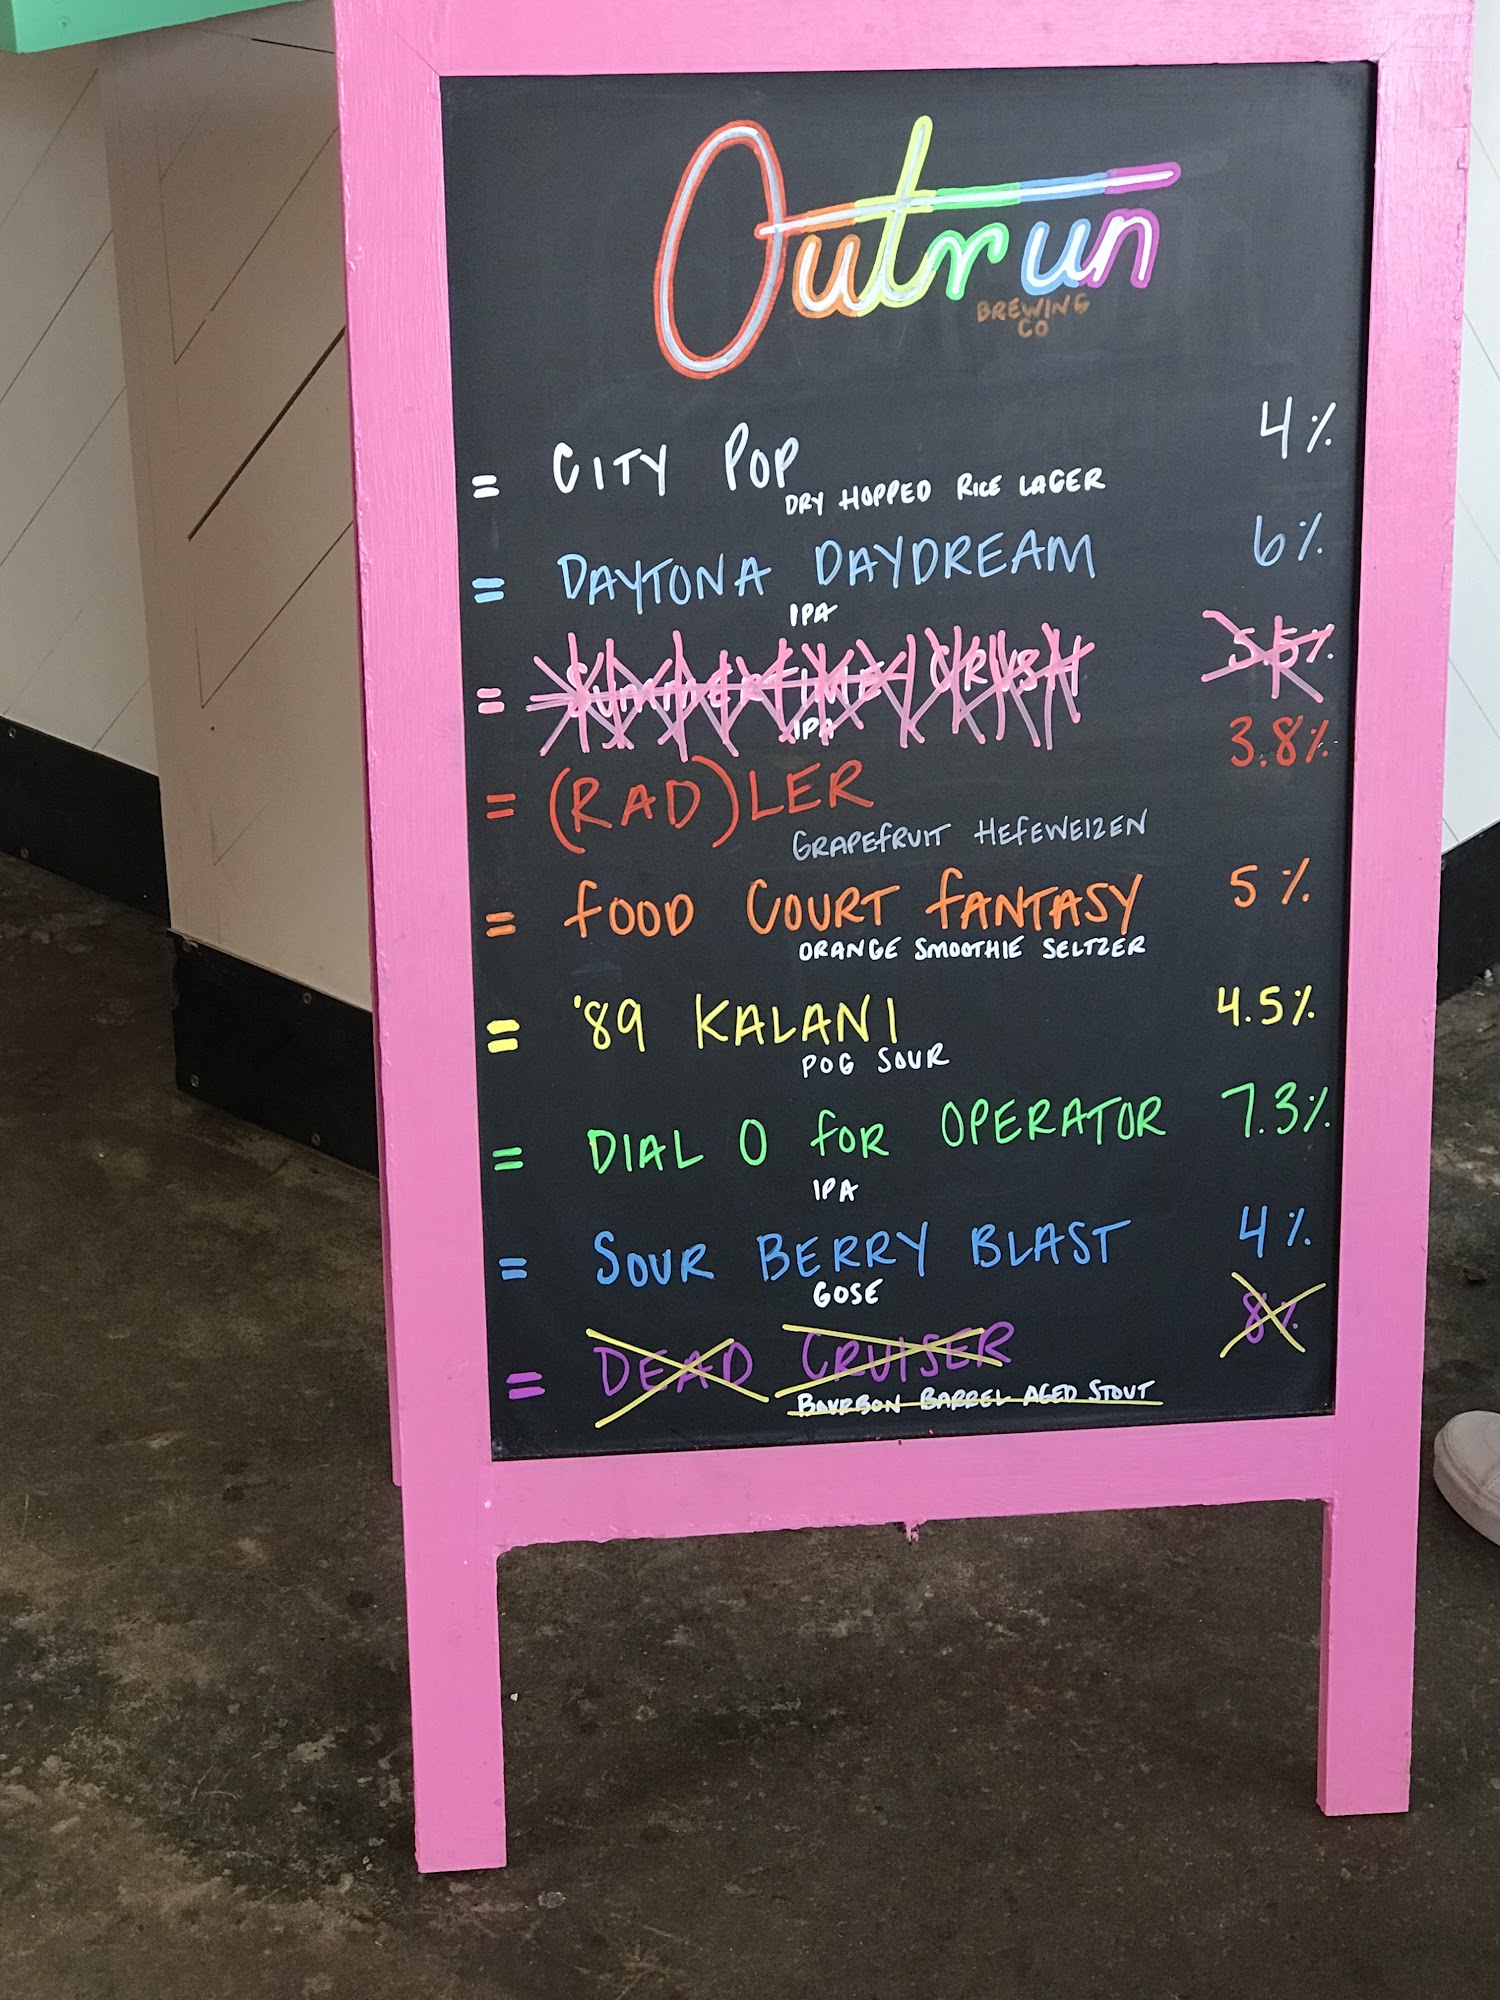 Outrun
BREWING
CO
= CITY POP 4%
DRY HOPPED RICE LAGER
= DAYTONA DAYDREAM 6%
IPA
= SUMMERTIME CRUSH 5.5%
IPA
= (RAD)LER 3.8%
GRAPEFRUIT HEFEWEIZEN
= FOOD COURT FANTASY 5%
ORANGE SMOOTHIE SELTZER
= '89 KALANI 4.5%
POG SOUR
= DIAL O FOR OPERATOR 7.3%
IPA
= SOUR BERRY BLAST 4%
GOSE
= DEAD CRUISER 8%
BOURBON BARREL AGED STOUT